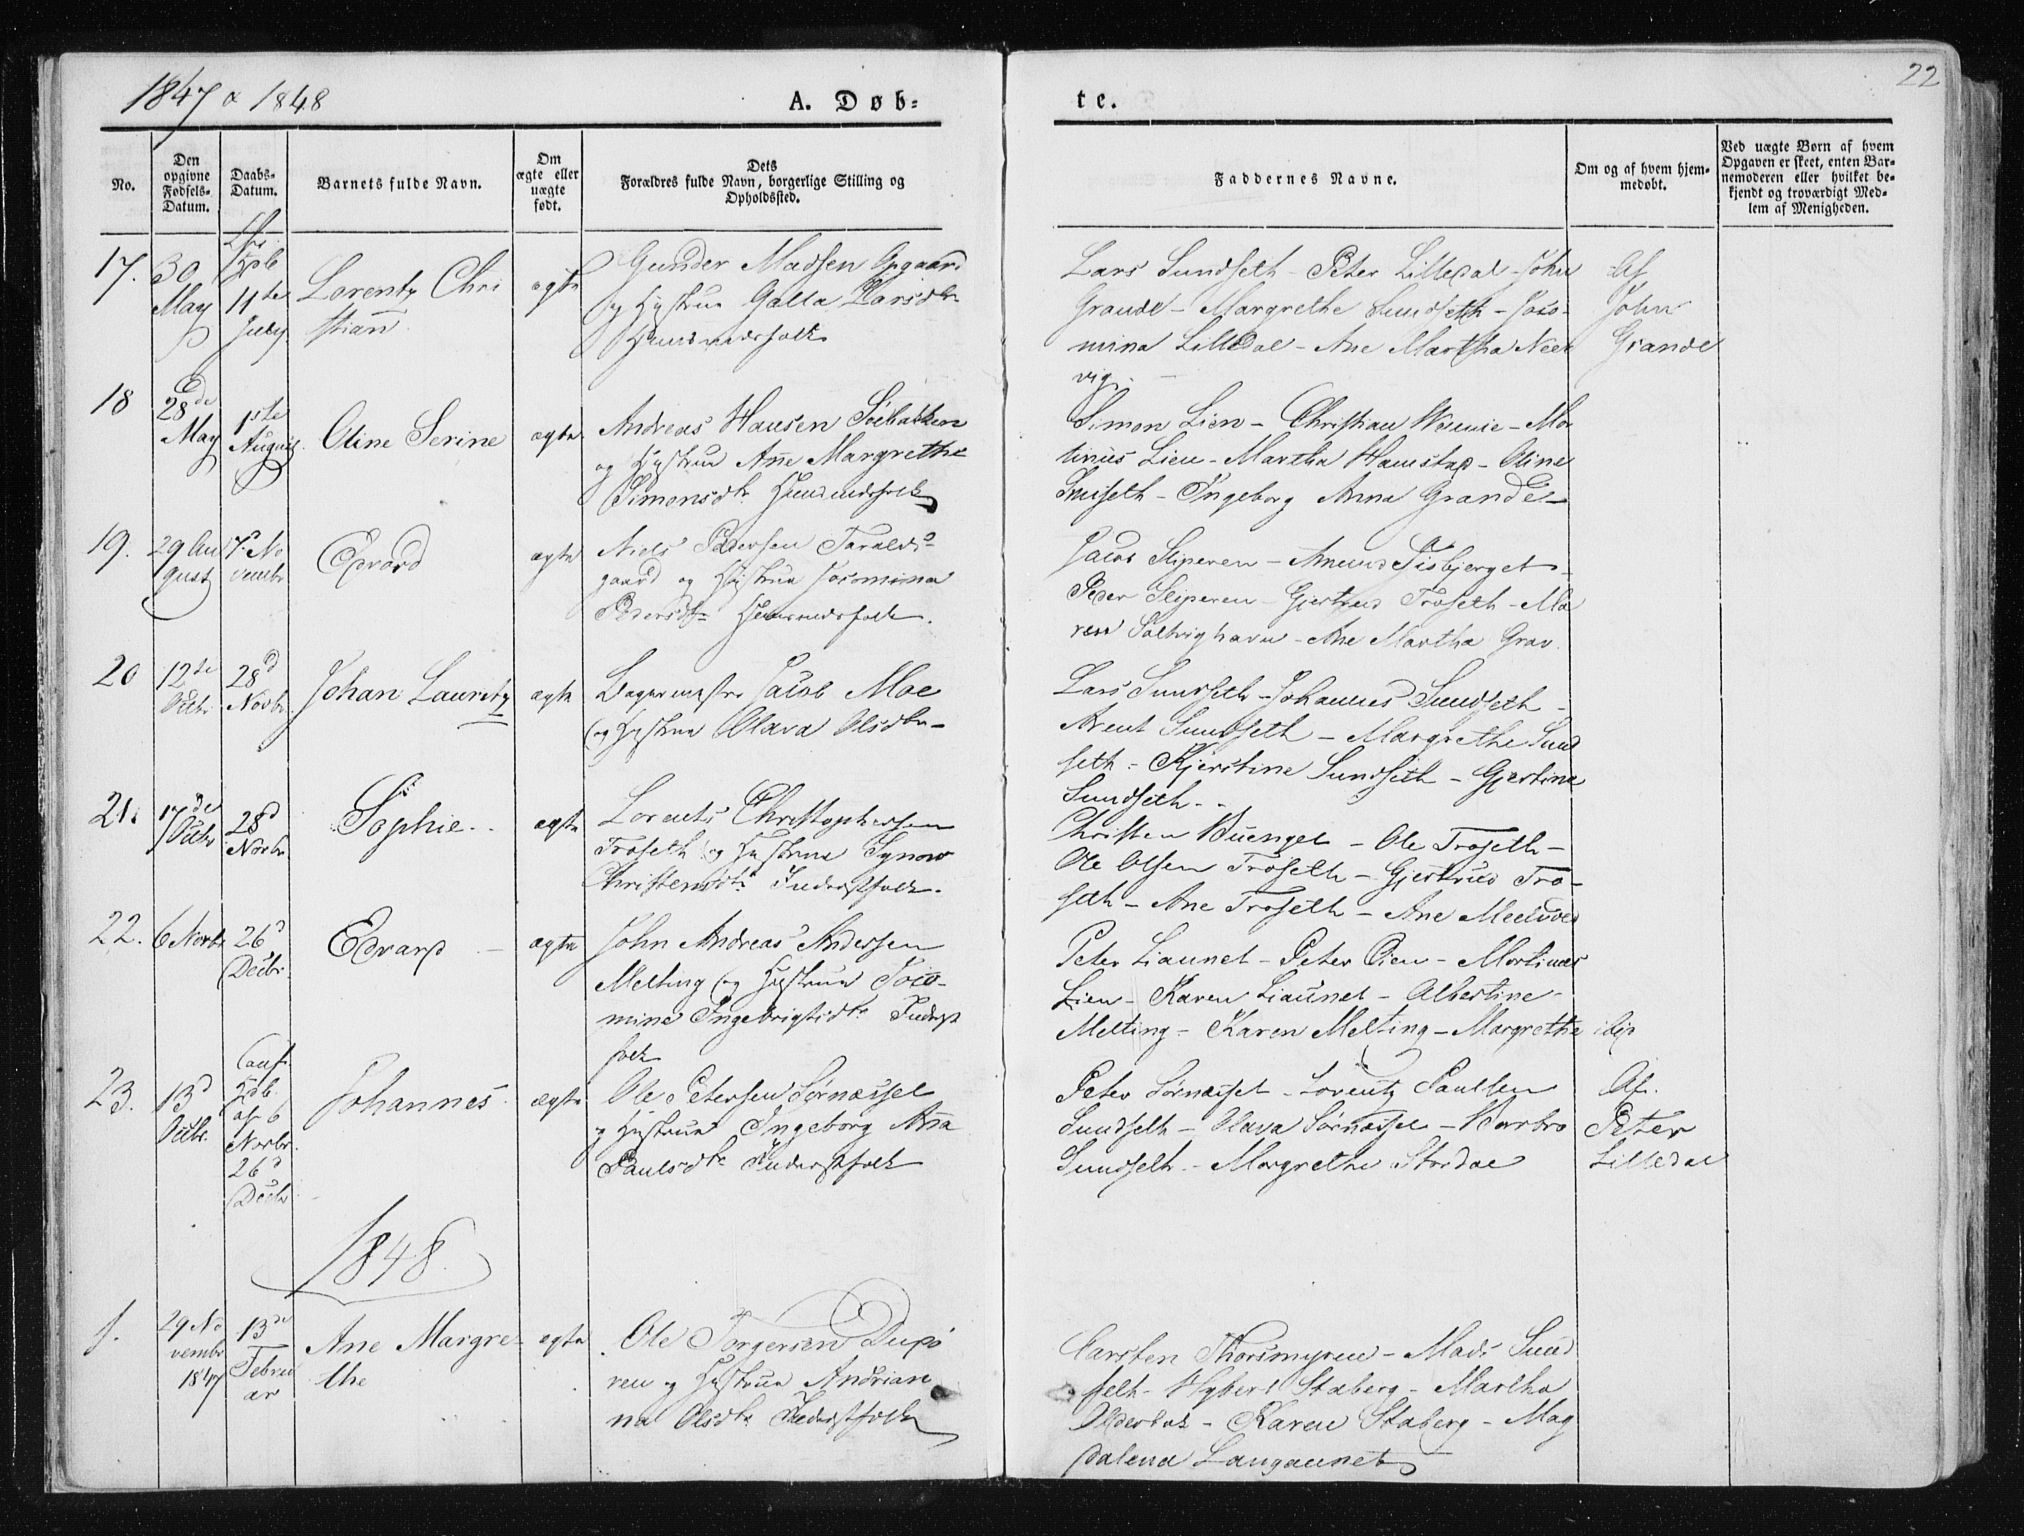 22
1847 & 1848
A. Døb-
te.
No.
Den opgivne Fødsels-Datum.
Daabs-Datum.
Barnets fulde Navn.
Om ægte eller uægte født.
Dets Forældres fulde Navn, borgerlige Stilling og Opholdssted.
Faddernes Navne.
Om og af hvem hjemmedøbt.
Ved uægte Børn af hvem Opgaven er skeet, enten Barnemoderen eller hvilket bekjendt og troværdigt Medlem af Menigheden.
17. 30 May
11te July
Lorentz Christian
ægte
Gunder Madsen Opgaard
og Hustrue Larsdtr
Huusmandsfolk
Lars Sundseth - Peter Lilledal - John
Grande - Margrethe Sundseth - Jaco-
mina Lilledal - Ane Martha Neer
vig.
Af
John
Grande
18
28de May
1ste August
Oline Serine
ægte
Andreas Hansen
og Hustrue Ane Margrethe
Simonsdtr Huusmandsfolk
Simon Lien - Christian - Mor
tinus Lien - Martha Hamstad - Oline
- Ingeborg Anna Grande
19.
29 August
7d November
Edvard
ægte
Niels Pedersen Taralds-
gaard og Hustrue Jacomina
Pedersdtr Huusmandsfolk.
Jacob Sliperen - Amund
Peder Sliperen - Gjertrud Troseth - Ma
ren - Ane Martha Grav.
20
12te Octbr
28d Novbr
Johan Lauretz
ægte
Jacob Moe
og Hustrue Olava Olsdtr
Lars Sundseth - Johannes Sundseth -
Arent Sundseth - Margrethe Sund
seth - Kjerstine Sundseth - Gjertine
Sundseth -
21.
17de Octbr
28d Novbr
Sophie
ægte
Lorents Christophersen
Troseth og Hustrue Synov
Christensdtr Inderstfolk.
Christen Buengel - Ole Troseth -
Ole Olsen Troseth - Gjertrud Tro-
seth - Ane Troseth - Ane
22.
6 Novbr
26d Decbr.
Edvard
ægte
John Andreas Andersen
Melting og Hustrue Jaco-
mine Ingebrigtsdtr Inderst
folk
Peter Liaunet - Peter Oien - Mortinus
Lien - Karen Liaunet - Albertine
Melting - Karen Melting - Margrethe ibid
23.
13d Octbr.
af 6 Novbr.
26d Decbr
Johannes
ægte
Ole Petersen Sørnæsset
og Hustrue Ingeborg Ana
Paulsdtr Inderstfolk
Peter Sørnæsset - Lorentz Paulsen
Sundseth - Olava Sørnæsset - Barbro
Sundseth - Margrethe Stordal
Af.
Peter
Lilledal
1848.
1.
29 November 1847
13de Februar
Ane Margrethe
ægte
Ole Torgersen
og Hustrue Andrian
na Olsdtr Inderstfolk
Carsten Thorsmyren - Mads Sund
seth - Staberg - Martha
Olderbak - Karen Staberg - Mag
dalena Langaunet